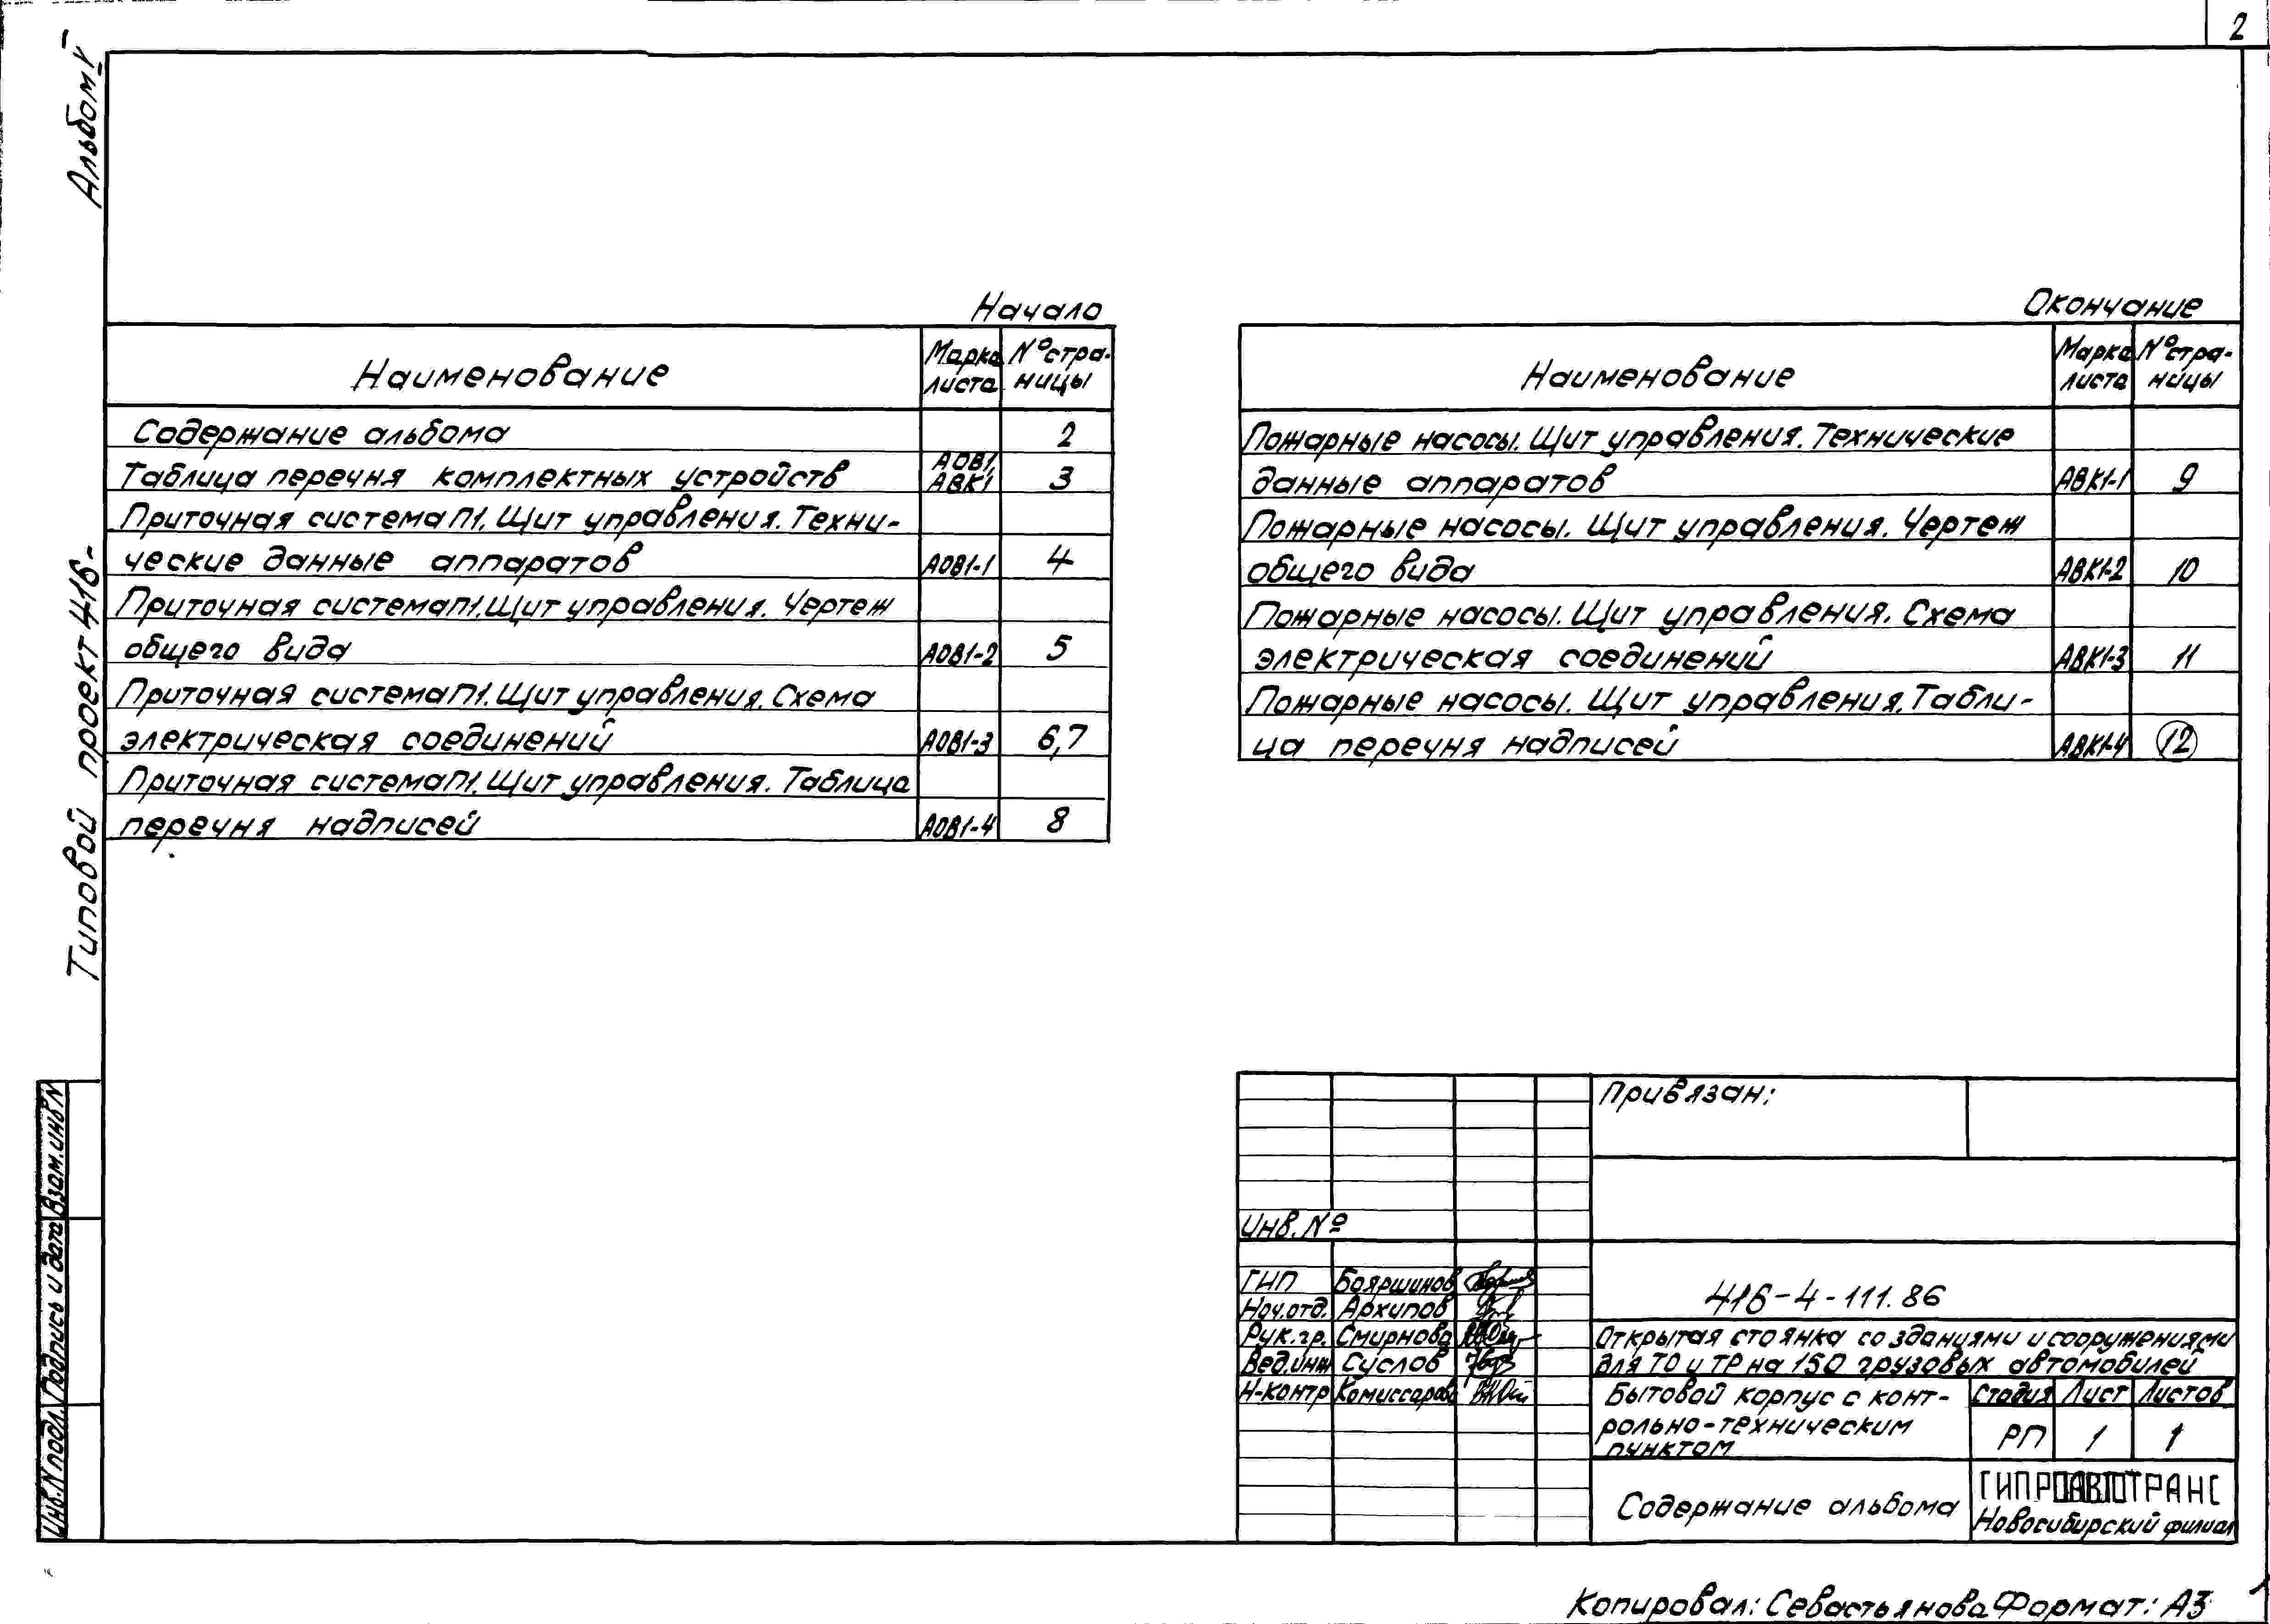 2
Альбом V
Типовой проект 416-
Начало
Наименование
Марка листа
№ стра-ницы
Содержание альбома 2
Таблица перечня комплектных устройств АОВ1, АВК1 3
Приточная система П1. Щит управления. Техни-
ческие данные аппаратов АОВ1-1 4
Приточная система П1. Щит управления. Чертеж
общего вида АОВ1-2 5
Приточная система П1. Щит управления. Схема
электрическая соединений АОВ1-3 6,7
Приточная система П1. Щит управления. Таблица
перечня надписей АОВ1-4 8
Окончание
Наименование
Марка листа
№ стра-ницы
Пожарные насосы. Щит управления. Технические
данные аппаратов АВК1-1 9
Пожарные насосы. Щит управления. Чертеж
общего вида АВК1-2 10
Пожарные насосы. Щит управления. Схема
электрическая соединений АВК1-3 11
Пожарные насосы. Щит управления. Табли-
ца перечня надписей АВК1-4 12
Взам. инв N
Подпись и дата
Инв. N подл.
Привязан:
Инв. №
ГИП Бояршинов
Нач. отд. Архипов
Рук. гр. Смирнова
Вед. инж Суслов
Н-контр Комиссарова
416-4-111.86
Открытая стоянка со зданиями и сооружениями
для ТО и ТР на 150 грузовых автомобилей
Бытовой корпус с конт-
рольно-техническим
пунктом
Стадия Лист Листов
РП 1 1
Содержание альбома
ГИПРОАВТОТРАНС
Новосибирский филиал
Копировал: Севастьянова Формат: А3